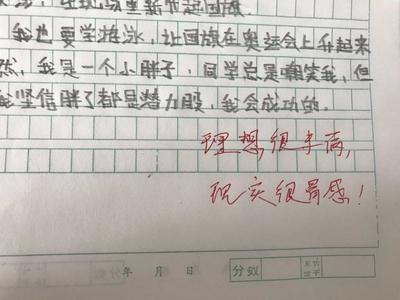 国旗
我也要学游泳，让国旗在奥运会上升起来
然，我是一个小胖子，同学总是嘲笑我，但
坚信胖了都是潜力股，我会成功的。
理想很丰满，
现实很骨感！
年 月 日